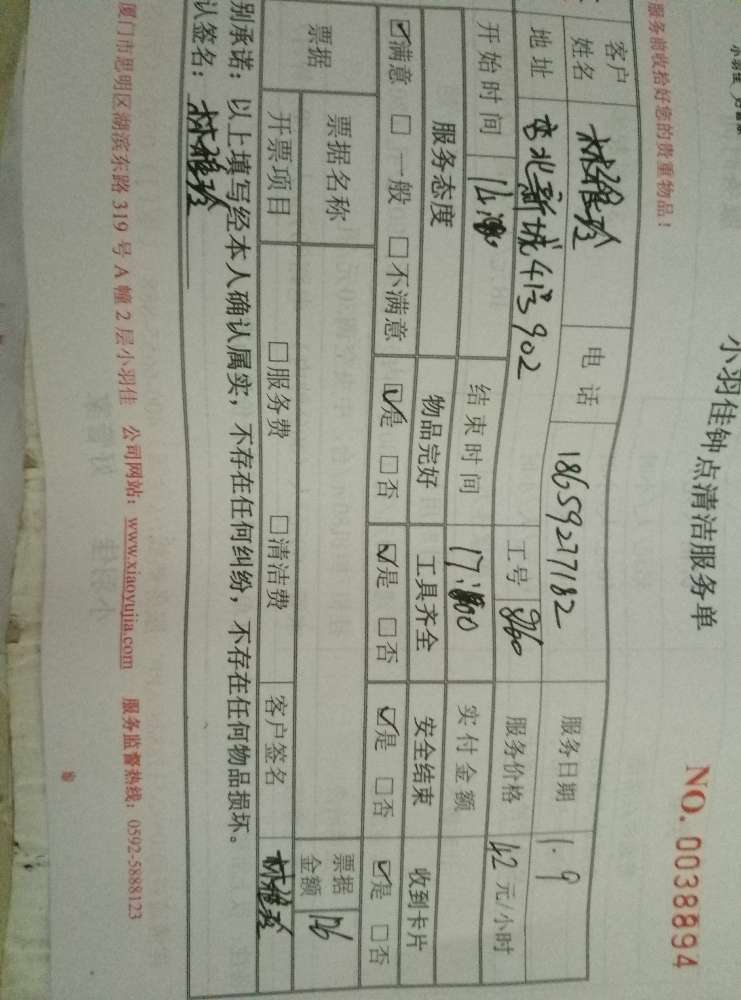 小羽佳钟点清洁服务单
NO. 0038894
服务前收拾好您的贵重物品！
客户姓名 林雅玲 电话 18659277182 服务日期 1.9
地址 杏北新城4号902 工号 860 服务价格 42 元/小时
开始时间 结束时间 实付金额
服务态度 物品完好 工具齐全 安全结束 收到卡片
☑满意 □一般 □不满意 ☑是 □否 ☑是 □否 ☑是 □否 ☑是 □否
票据 票据名称 票据金额 126
开票项目 □服务费 □清洁费 客户签名 林雅玲
别承诺：以上填写经本人确认属实，不存在任何纠纷，不存在任何物品损坏。
认签名：林雅玲
厦门市思明区湖滨东路 319 号 A 幢 2 层小羽佳 公司网站：www.xiaoyujia.com 服务监督热线：0592-5888123